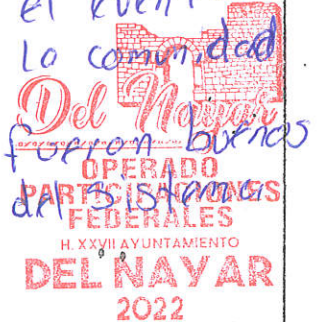 el even
la comunidad
Del Nayar
fueron buenos
OPERADO
PARTICIPACIONES
del sistema
FEDERALES
H. XXVII AYUNTAMIENTO
DEL NAYAR
2022